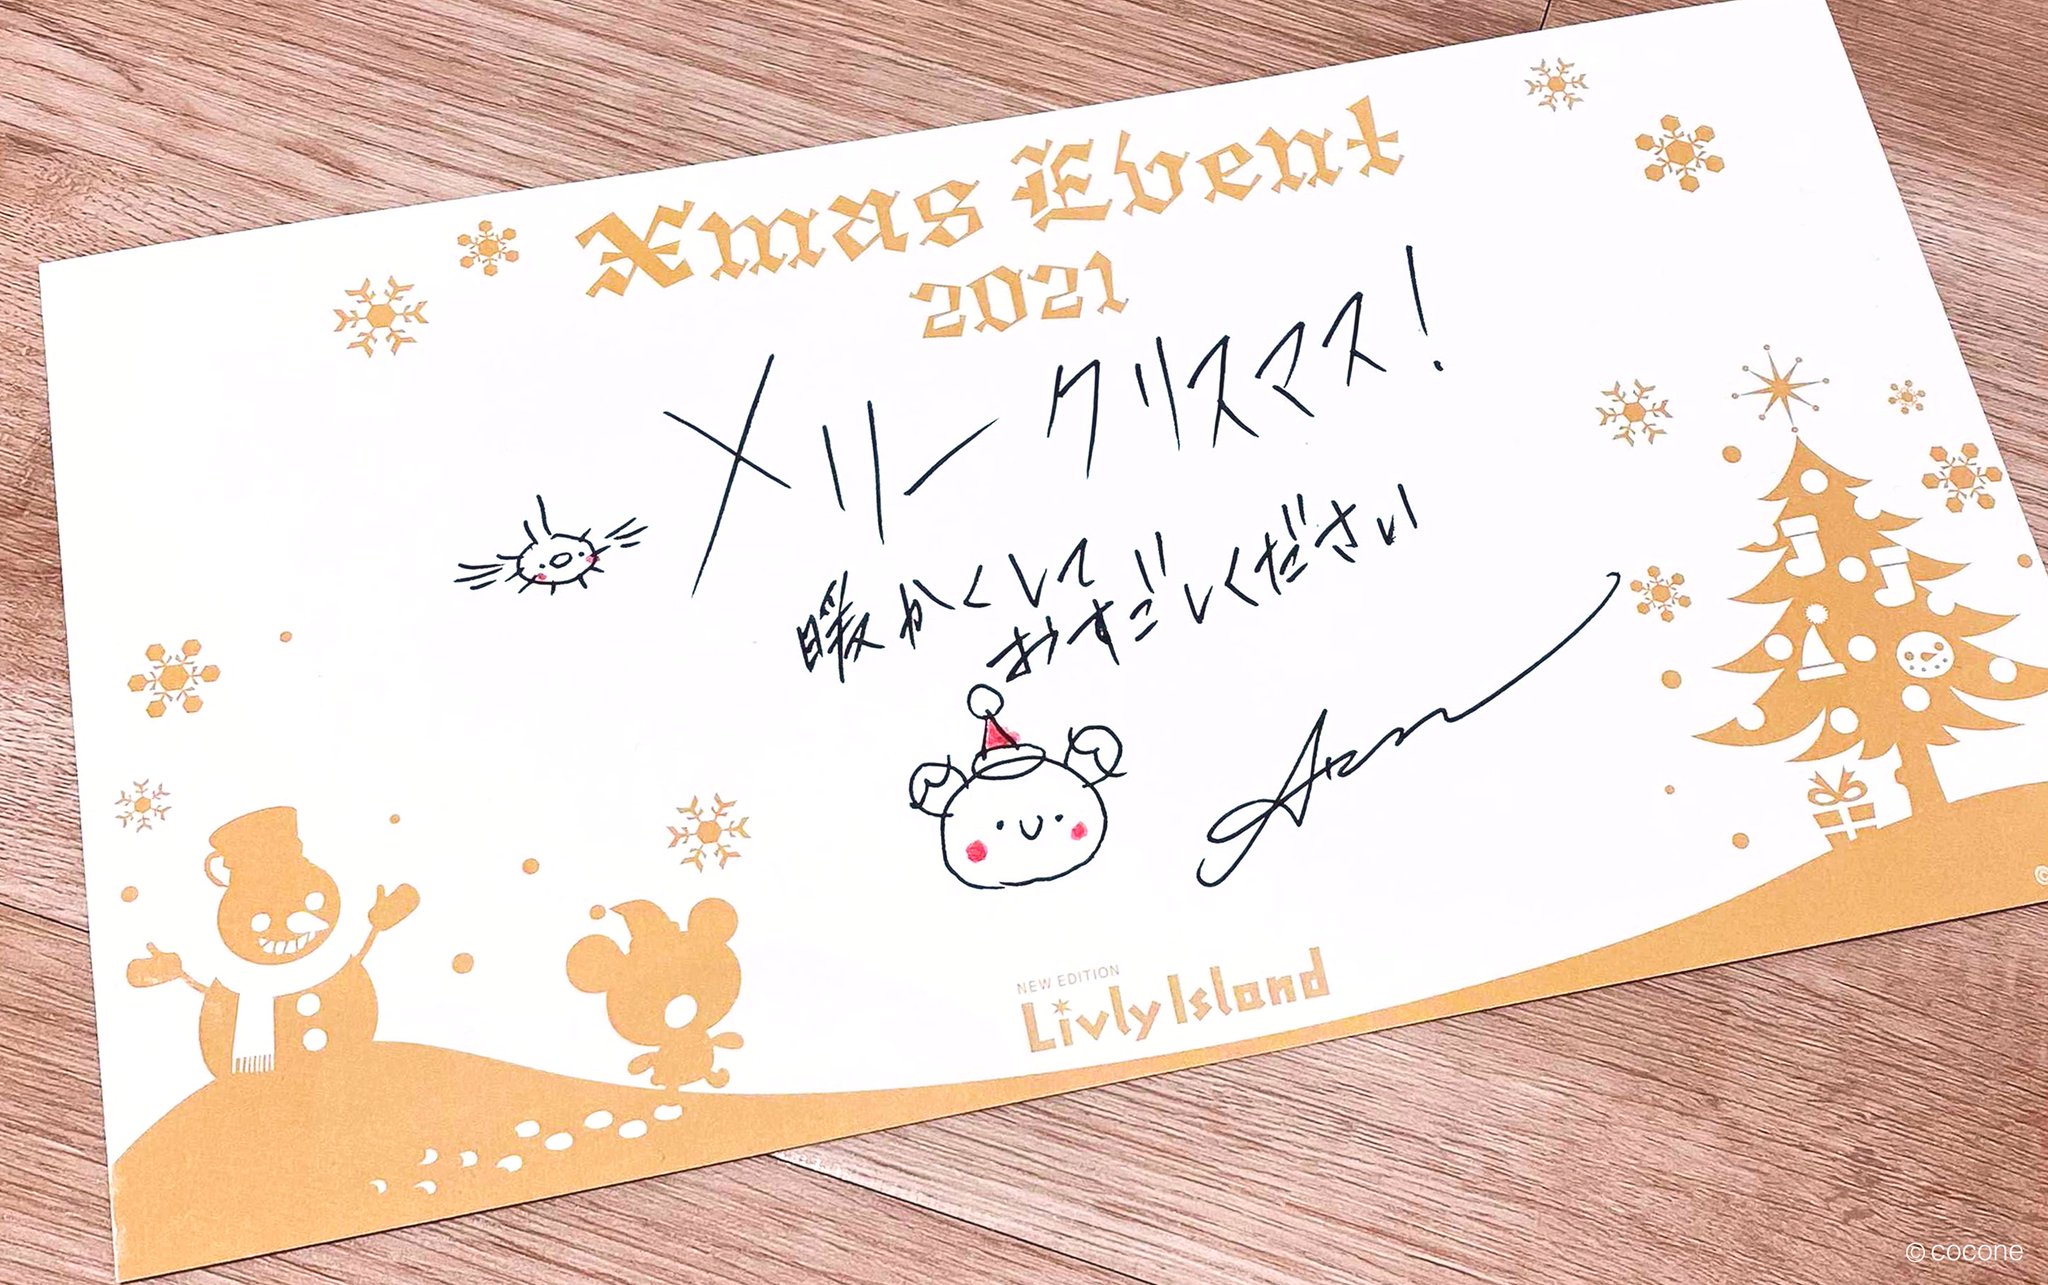 Xmas Event
2021
メリークリスマス!
暖かくして
おすごしください
NEW EDITION
Livly Island
© cocone